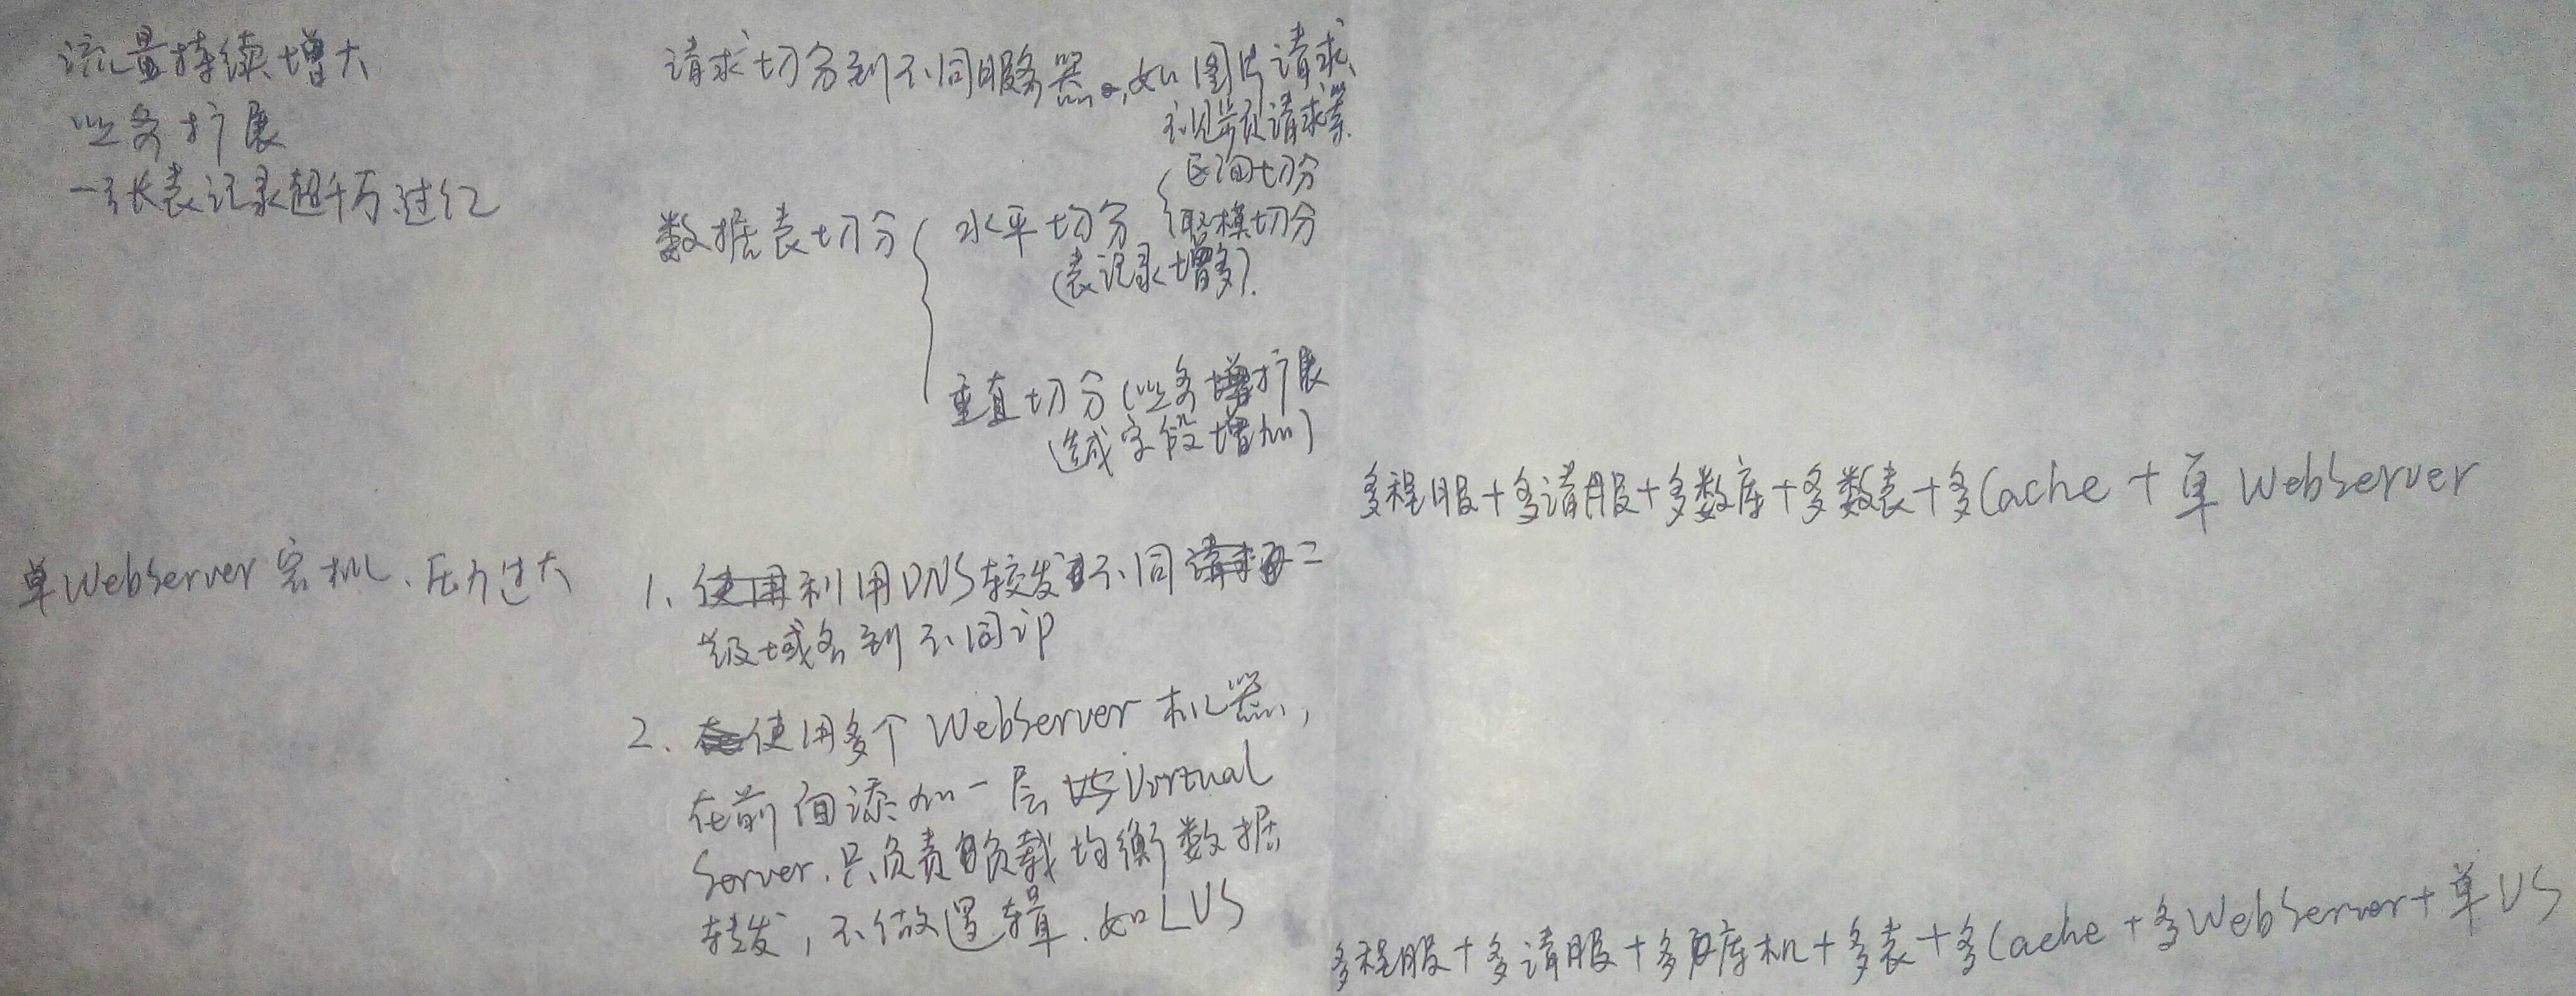 流量持续增大
业务扩展
一张表记录超千万过亿
请求切分到不同服务器,如图片请求、
视频请求等
数据表切分
水平切分
区间切分
取模切分
(表记录增多).
垂直切分(业务扩展
造成字段增加)
多程服+多请服+多数库+多数表+多Cache+单WebServer
单WebServer宕机、压力过大
1、利用DNS转发不同二
级域名到不同ip
2、使用多个WebServer机器,
在前面添加一层Virtual
Server.只负责负载均衡数据
转发,不做逻辑.如LVS
多程服+多请服+多库机+多表+多Cache+多WebServer+单VS